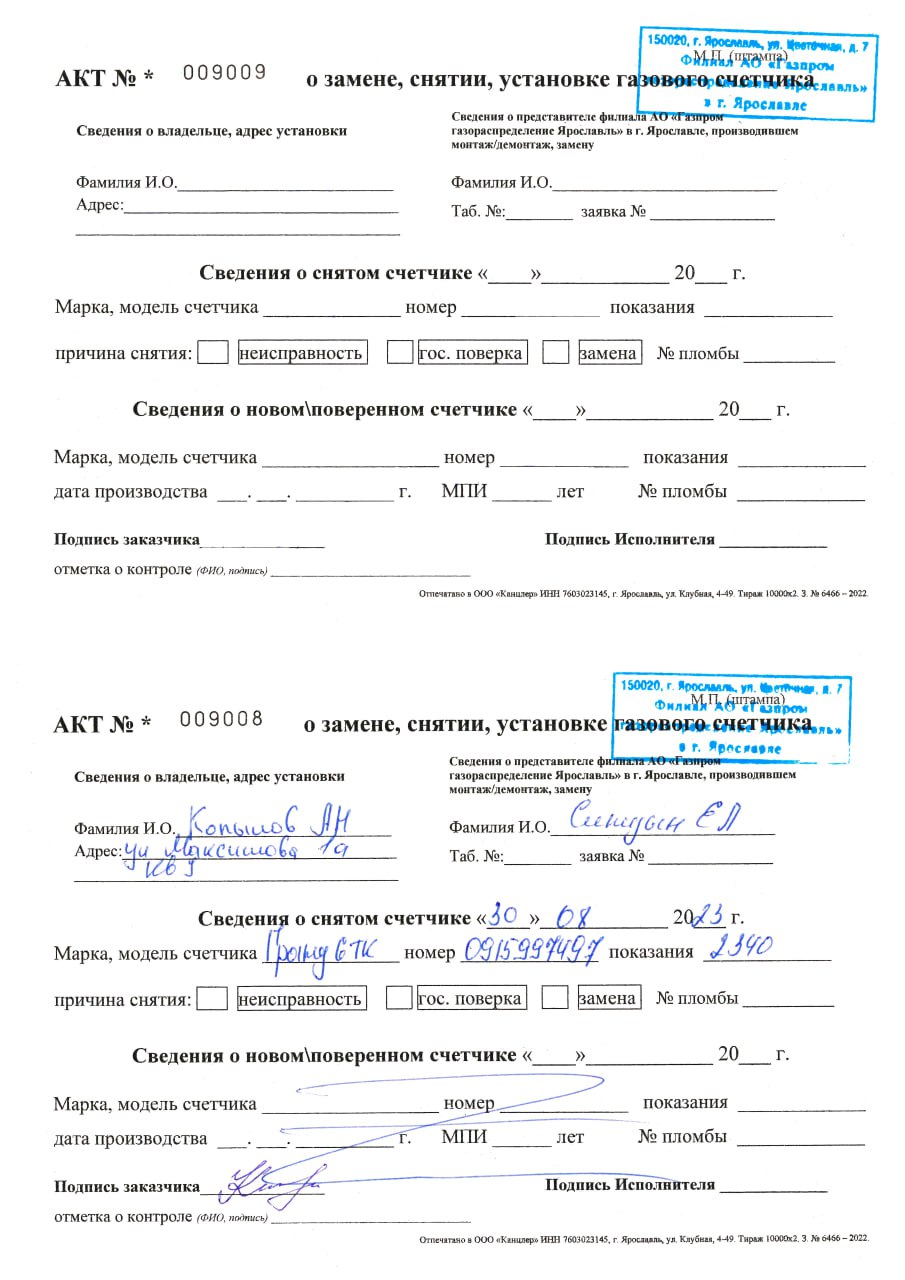 150020, г. Ярославль, ул. Цветочная, д. 7
М.П. (штампа)
Филиал АО «Газпром
газораспределение Ярославль»
в г. Ярославле
АКТ № * 009009 о замене, снятии, установке газового счетчика
Сведения о владельце, адрес установки
Сведения о представителе филиала АО «Газпром
газораспределение Ярославль» в г. Ярославле, производившем
монтаж/демонтаж, замену
Фамилия И.О.
Адрес:
Фамилия И.О.
Таб. №: заявка №
Сведения о снятом счетчике «____»____________ 20___ г.
Марка, модель счетчика номер показания
причина снятия: неисправность гос. поверка замена № пломбы
Сведения о новом\поверенном счетчике «____»____________ 20___ г.
Марка, модель счетчика номер показания
дата производства ___. ___. __________ г. МПИ ______ лет № пломбы
Подпись заказчика Подпись Исполнителя
отметка о контроле (ФИО, подпись)
Отпечатано в ООО «Канцлер» ИНН 7603023145, г. Ярославль, ул. Клубная, 4-49. Тираж 10000х2. З. № 6466 – 2022.
150020, г. Ярославль, ул. Цветочная, д. 7
М.П. (штампа)
Филиал АО «Газпром
газораспределение Ярославль»
в г. Ярославле
АКТ № * 009008 о замене, снятии, установке газового счетчика
Сведения о владельце, адрес установки
Сведения о представителе филиала АО «Газпром
газораспределение Ярославль» в г. Ярославле, производившем
монтаж/демонтаж, замену
Фамилия И.О. Копылов АН
Адрес: ул Максимова 1а
кв
Фамилия И.О. Синицын ЕЛ
Таб. №: заявка №
Сведения о снятом счетчике «30» 08 2023 г.
Марка, модель счетчика Гранд 6ТК номер 0915997497 показания 2340
причина снятия: неисправность гос. поверка замена № пломбы
Сведения о новом\поверенном счетчике «____»____________ 20___ г.
Марка, модель счетчика номер показания
дата производства ___. ___. __________ г. МПИ ______ лет № пломбы
Подпись заказчика Подпись Исполнителя
отметка о контроле (ФИО, подпись)
Отпечатано в ООО «Канцлер» ИНН 7603023145, г. Ярославль, ул. Клубная, 4-49. Тираж 10000х2. З. № 6466 – 2022.